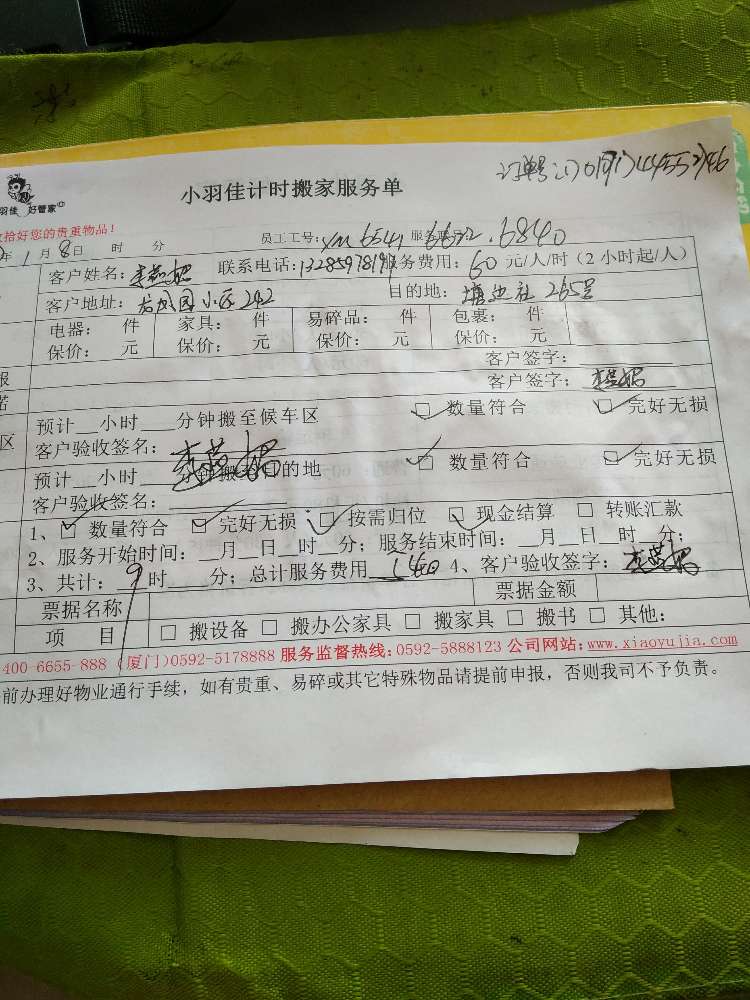 小羽佳计时搬家服务单
羽佳 好管家
收拾好您的贵重物品!
年1月8日 时 分 员工工号: 6541 服务 6840
客户姓名: 联系电话: 服务费用: 60 元/人/时(2小时起/人)
客户地址: 园小区242 目的地: 塘边社265号
电器: 件 家具: 件 易碎品: 件 包裹: 件
保价: 元 保价: 元 保价: 元 保价: 元
客户签字:
客户签字:
预计__小时___分钟搬至候车区 □ 数量符合 □ 完好无损
客户验收签名:
预计__小时___分钟搬至目的地 □ 数量符合 □ 完好无损
客户验收签名:
1、□ 数量符合 □ 完好无损 □ 按需归位 □ 现金结算 □ 转账汇款
2、服务开始时间:__月__日__时__分; 服务结束时间:__月__日__时__分;
3、共计: 9 时___分; 总计服务费用 4、客户验收签字:
票据名称 票据金额
项 目 □ 搬设备 □ 搬办公家具 □ 搬家具 □ 搬书 □ 其他:
400-6655-888 (厦门)0592-5178888 服务监督热线:0592-5888123 公司网站:www.xiaoyujia.com
前办理好物业通行手续,如有贵重、易碎或其它特殊物品请提前申报,否则我司不予负责。